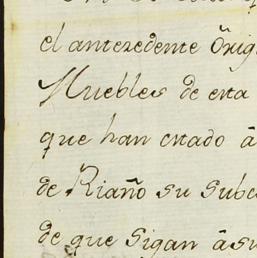 el antezedente Õrig
Muebles de esta
que han estado â
de Riaño su Subc
de que Sigan âsu